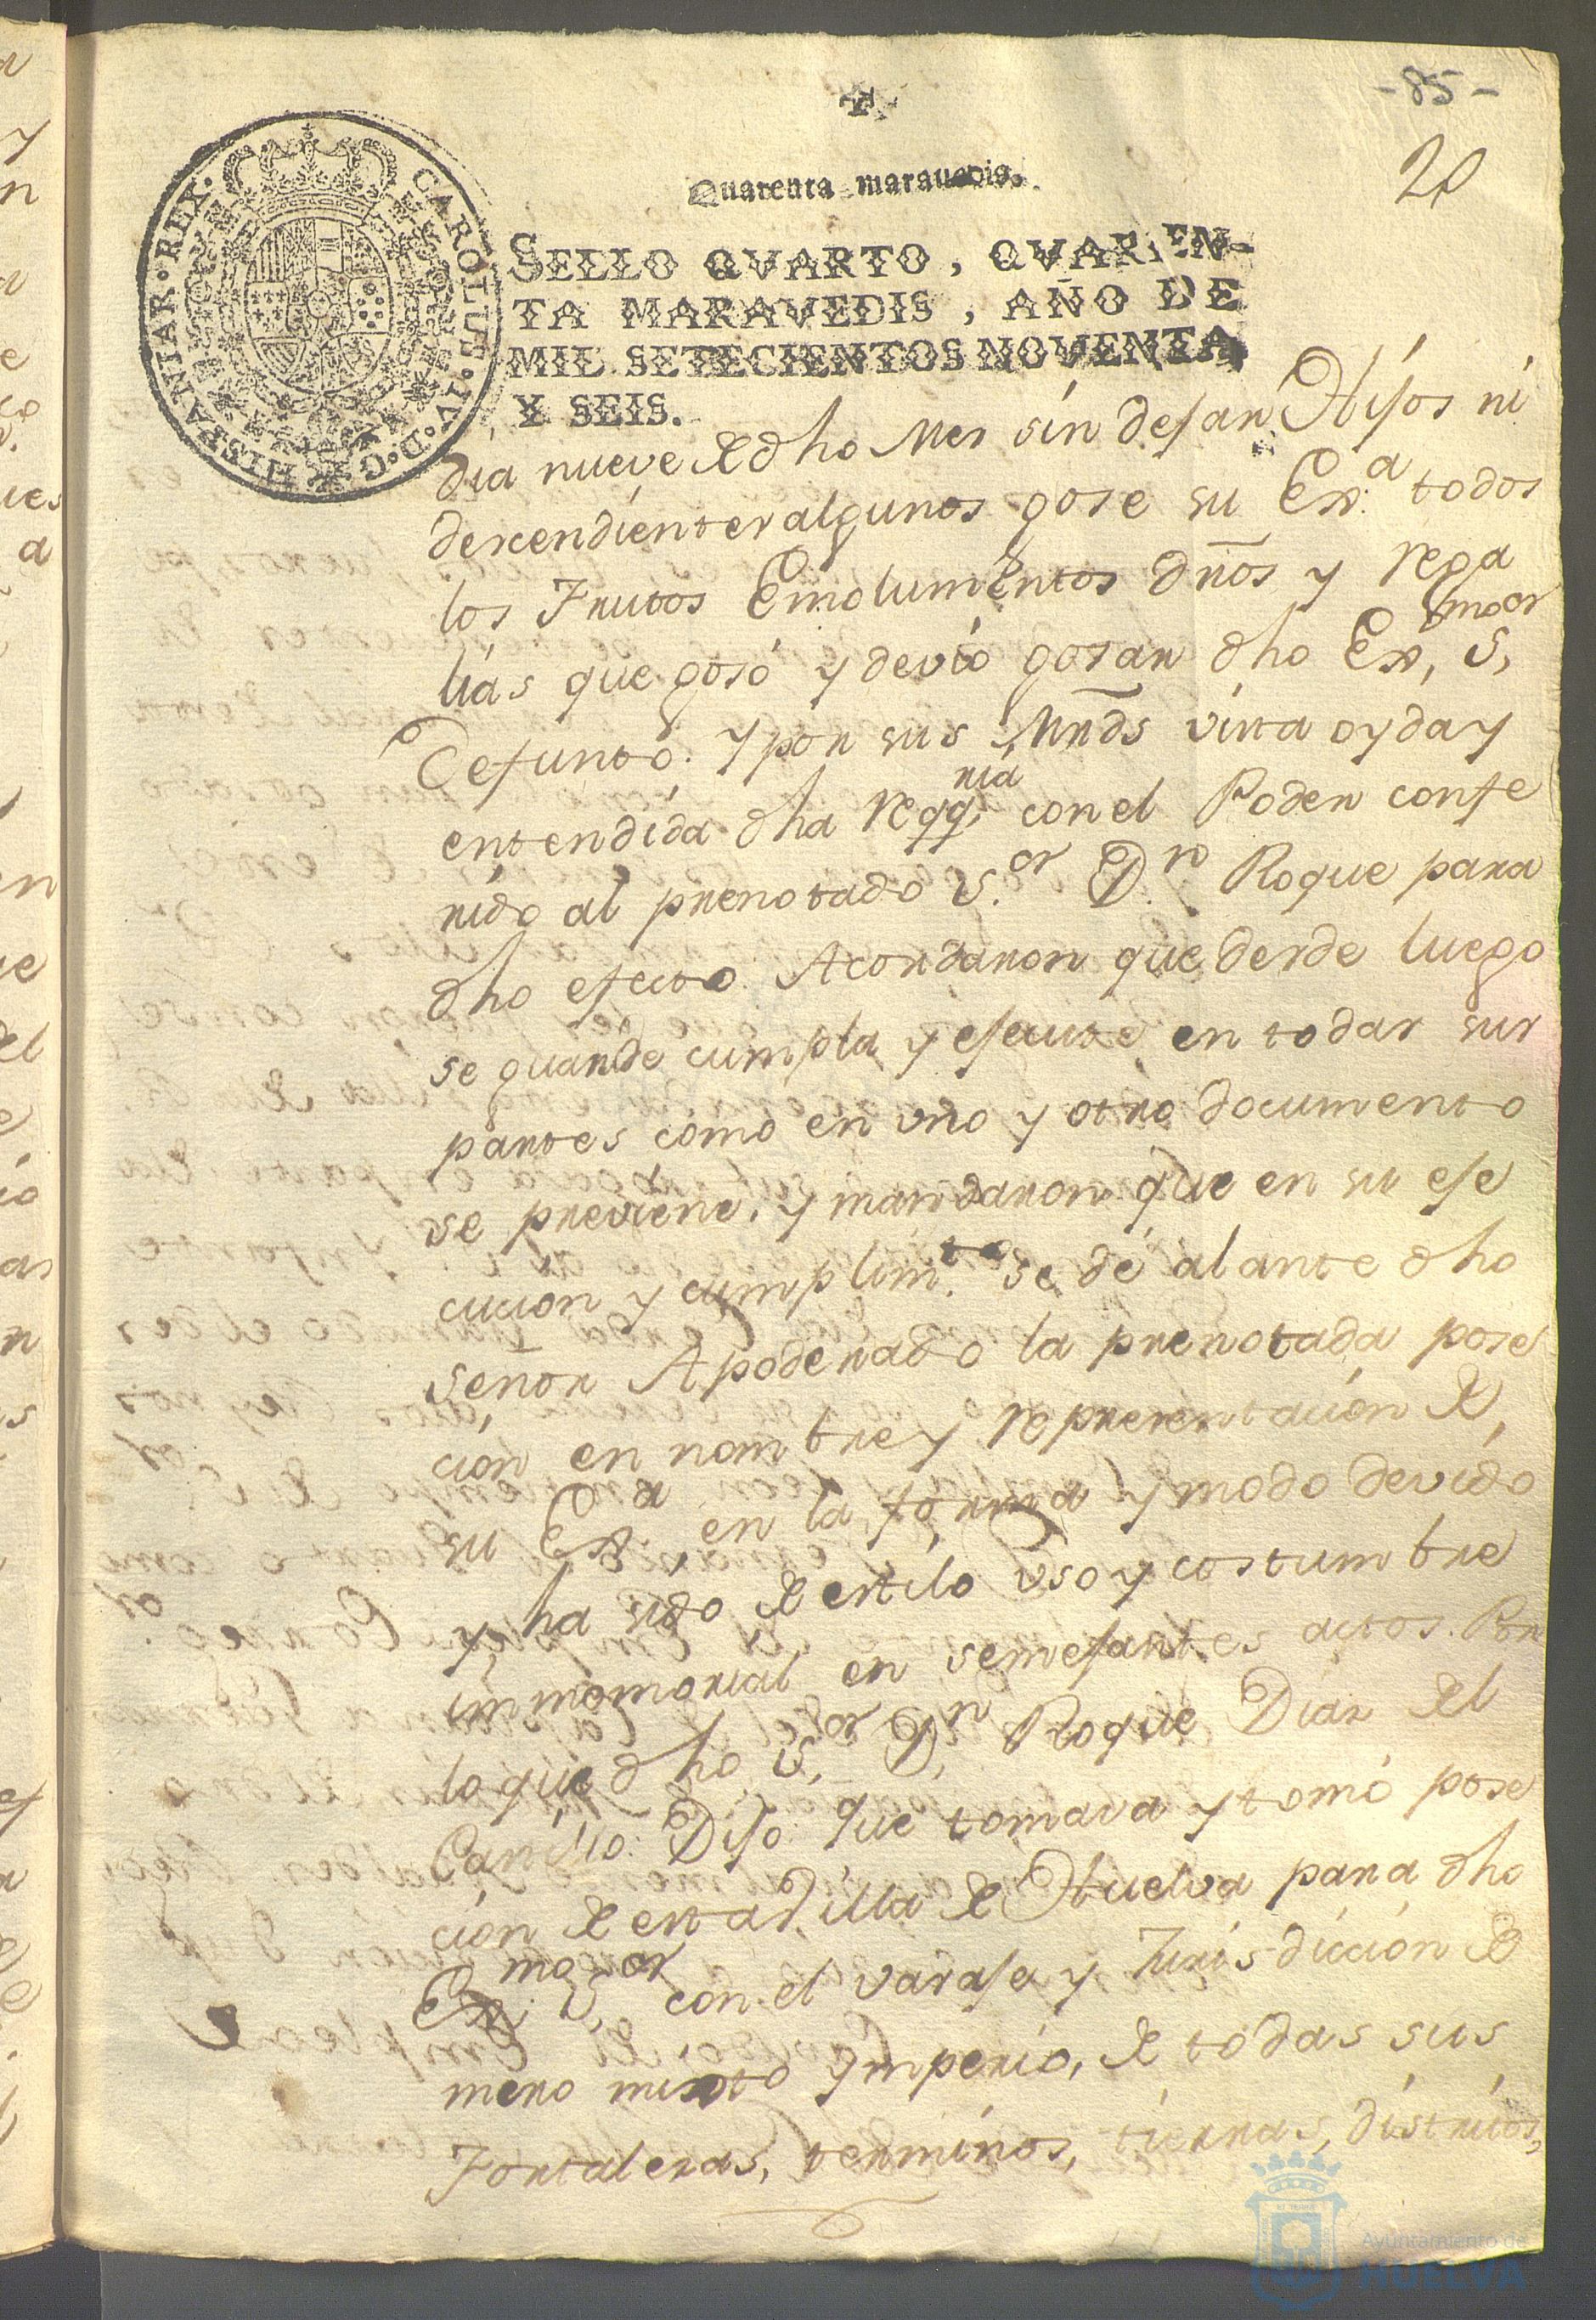 -85-
20
Quarenta maravedis.
SELLO QVARTO, QVAREN-
TA MARAVEDIS, AÑO DE
MIL SETECIENTOS NOVENTA
Y SEIS.
CAROLUS·IV·D·G·HISPANIAR·REX·
dia nueve de dho Mes sin dejar Hijos ni
descendientes algunos gose su Exª todos
los Frutos Emolumentos dr̃os y rega
lias que gosó y devió gosar dho Exmo Sor
Defunto. y por sus Mrds vista oyda y
entendida dha reqqria con el Poder confe
rido al prenotado Sor Dn Roque para
dho efecto. Acordaron que desde luego
se guarde cumpla y ejecute en todas sus
partes como en uno y otro documento
se previene, y mandaron que en su eje
cucion y cumplimto se dé al ante dho
señor Apoderado la prenotada pose
cion en nombre y representacion de
su Exª en la forma y modo devido
y ha sido de estilo uso y costumbre
immomorial en semejantes actos. Por
lo que dho Sor Dn Roque Diaz del
Castillo: Dijo: que tomava y tomó pose
cion de esta Villa de Huelva para dho
Exmo Sor con el vasaje y Jurisdiccion de
mero mixto ymperio, de todas sus
Fortalezas, terminos, tierras, distritos,
Ayuntamiento de
HUELVA